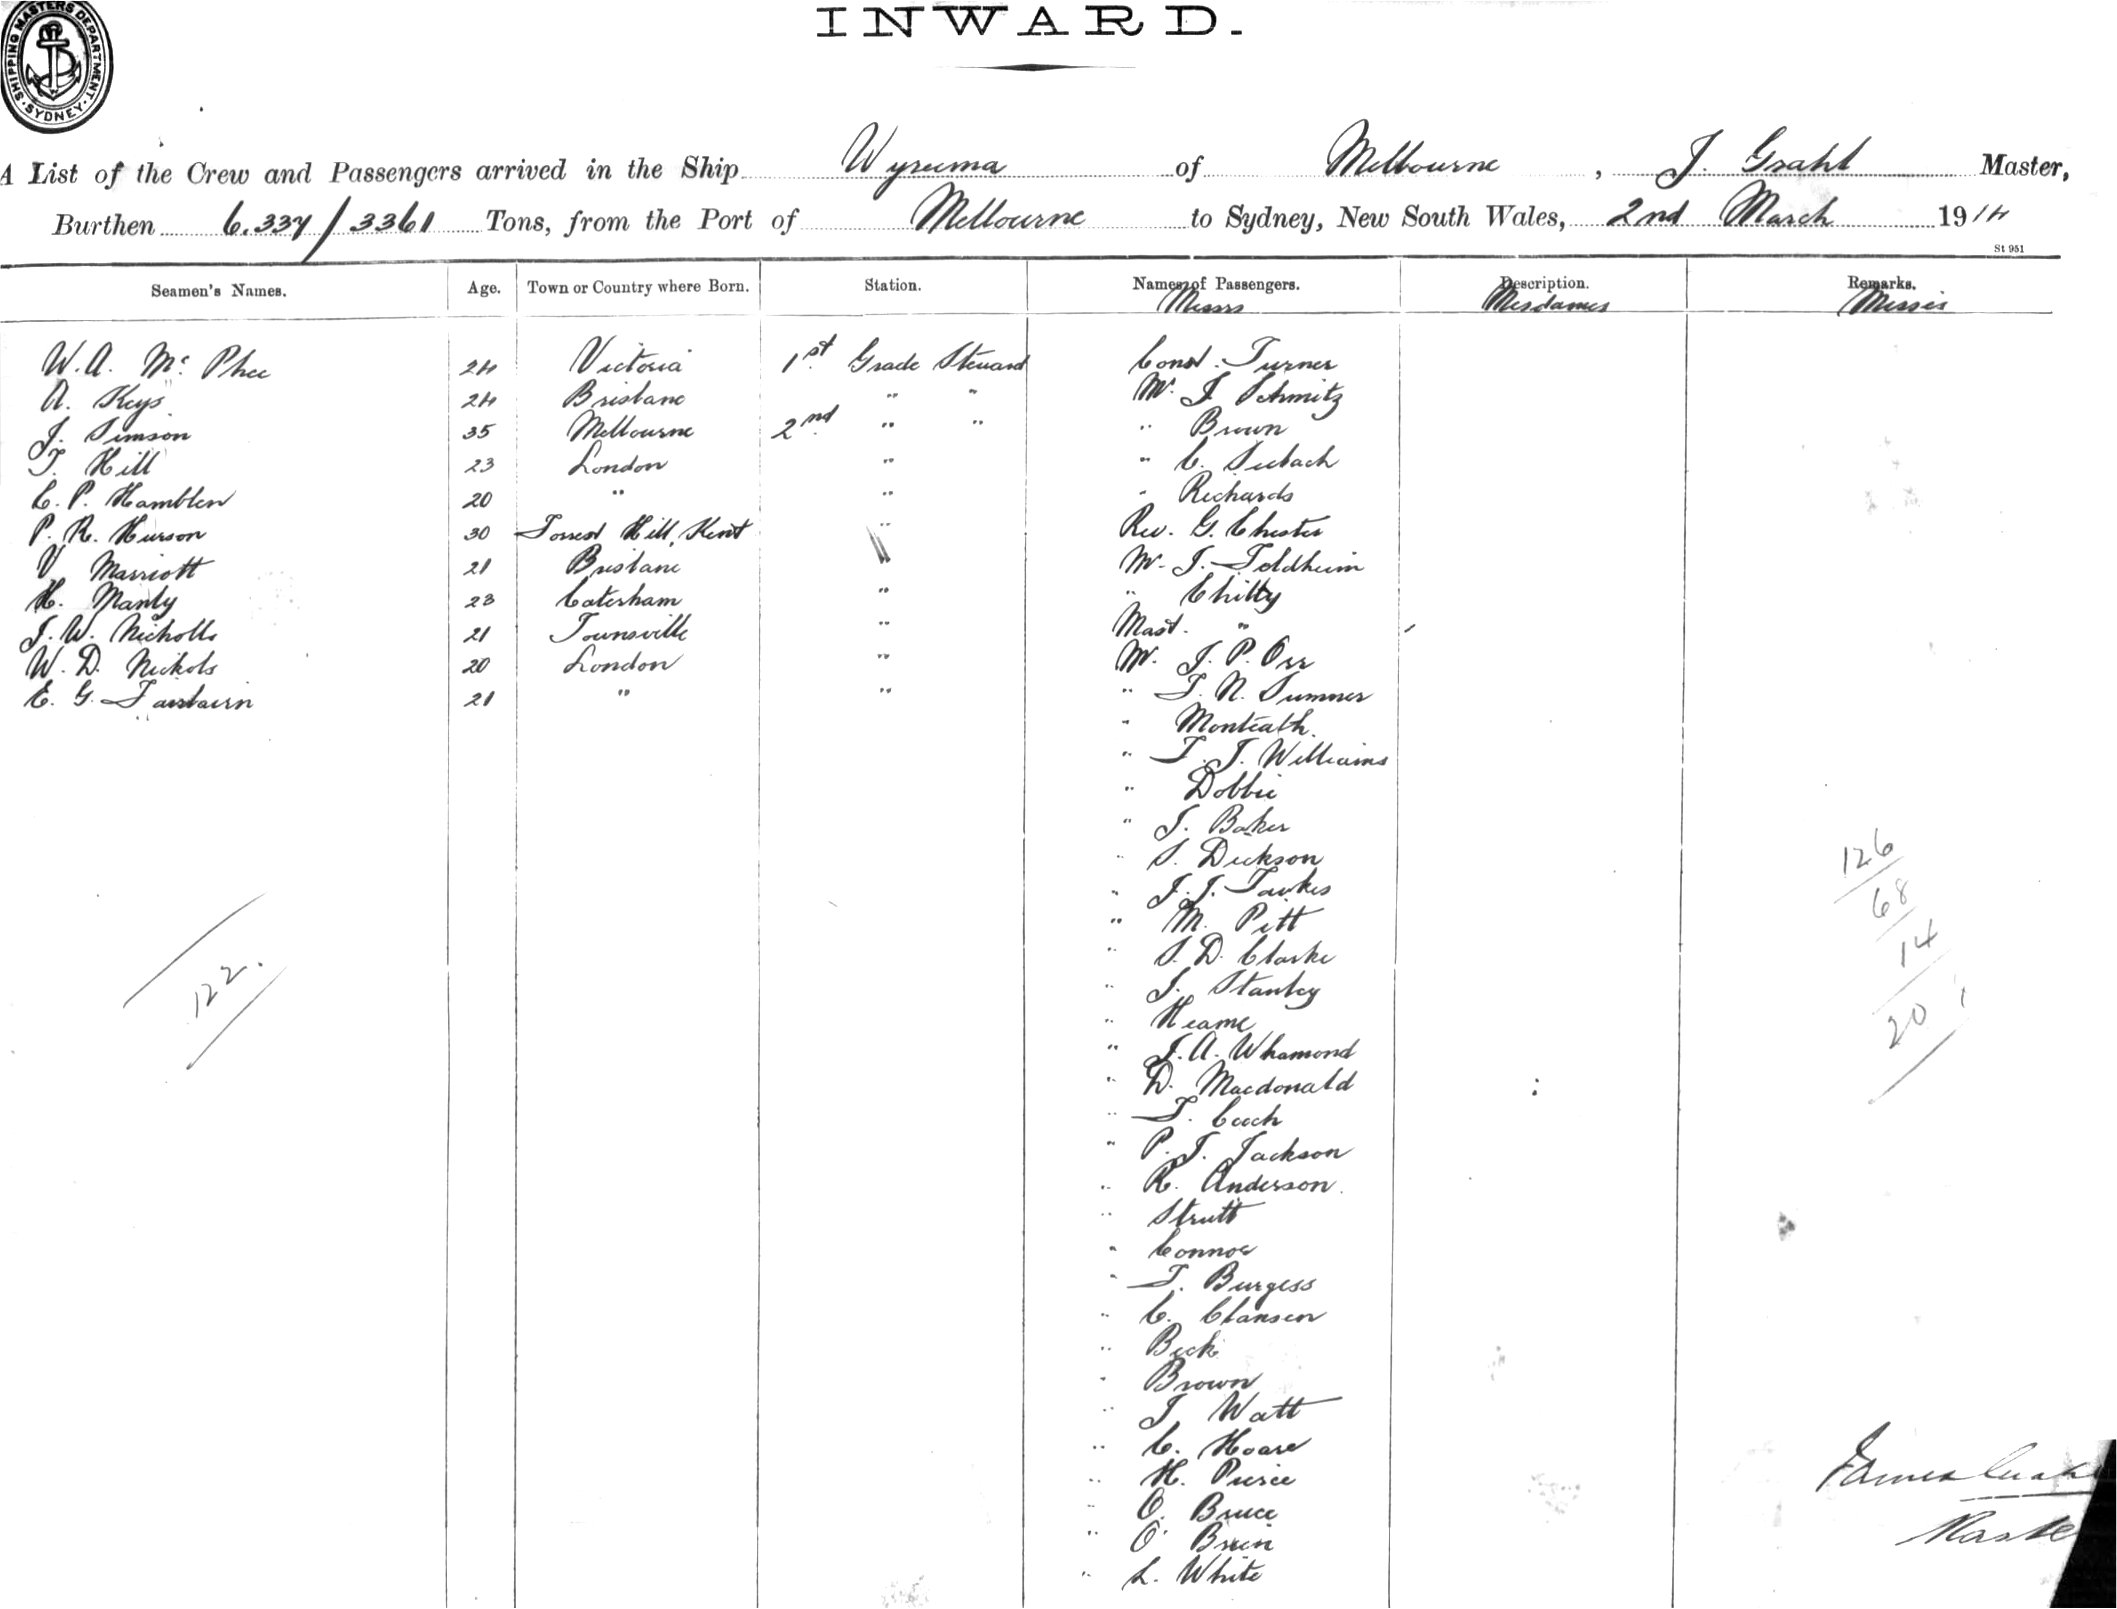 SHIPPING MASTERS DEPARTMENT · SYDNEY ·
INWARD.
A List of the Crew and Passengers arrived in the Ship Wyreema of Melbourne, J. Grahl Master,
Burthen 6.337/3361 Tons, from the Port of Melbourne to Sydney, New South Wales, 2nd March 1914
St 951
Seamen's Names. Age. Town or Country where Born. Station. Names of Passengers. Description. Remarks.
Messrs Mesdames Misses
W. A. Mc Phee 24 Victoria 1st Grade Steward Const. Turner
A. Keys 24 Brisbane " " Mr. J Schmitz
J. Simson 35 Melbourne 2nd " " " Brown
T. Hill 23 London " " C. Seebach
C. P. Hamblen 20 " " " Richards
P. R. Hurson 30 Forrest Hill, Kent " Rev. G. Chester
V Marriott 21 Brisbane " Mr. J. Foldheim
H. Manly 23 Caterham " " Chitty
J. W. Nicholls 21 Townsville " Mast. "
W. D. Nickols 20 London " Mr. J. P. Orr
E. G. Fairbairn 21 " " " T. N. Sumner
" Monteath.
" T. J. Williams
" Dobbie
" J. Baker
" S. Dickson
" J. J. Fawkes
" M. Pitt
" S. D. Clarke
" J. Stanley
" Hearne
" J. A. Whamond
" D. Macdonald
" T. Cech
" P. T. Jackson
" R. Anderson.
" Strutt
" Connor
" T. Burgess
" C. Clansen
" Beck
" Brown
" J Watt
" C. Hoare
" H. Pierce
" O. Bruce
" O' Brien
" L. White
122.
126
68
14
20
James Grahl
Master